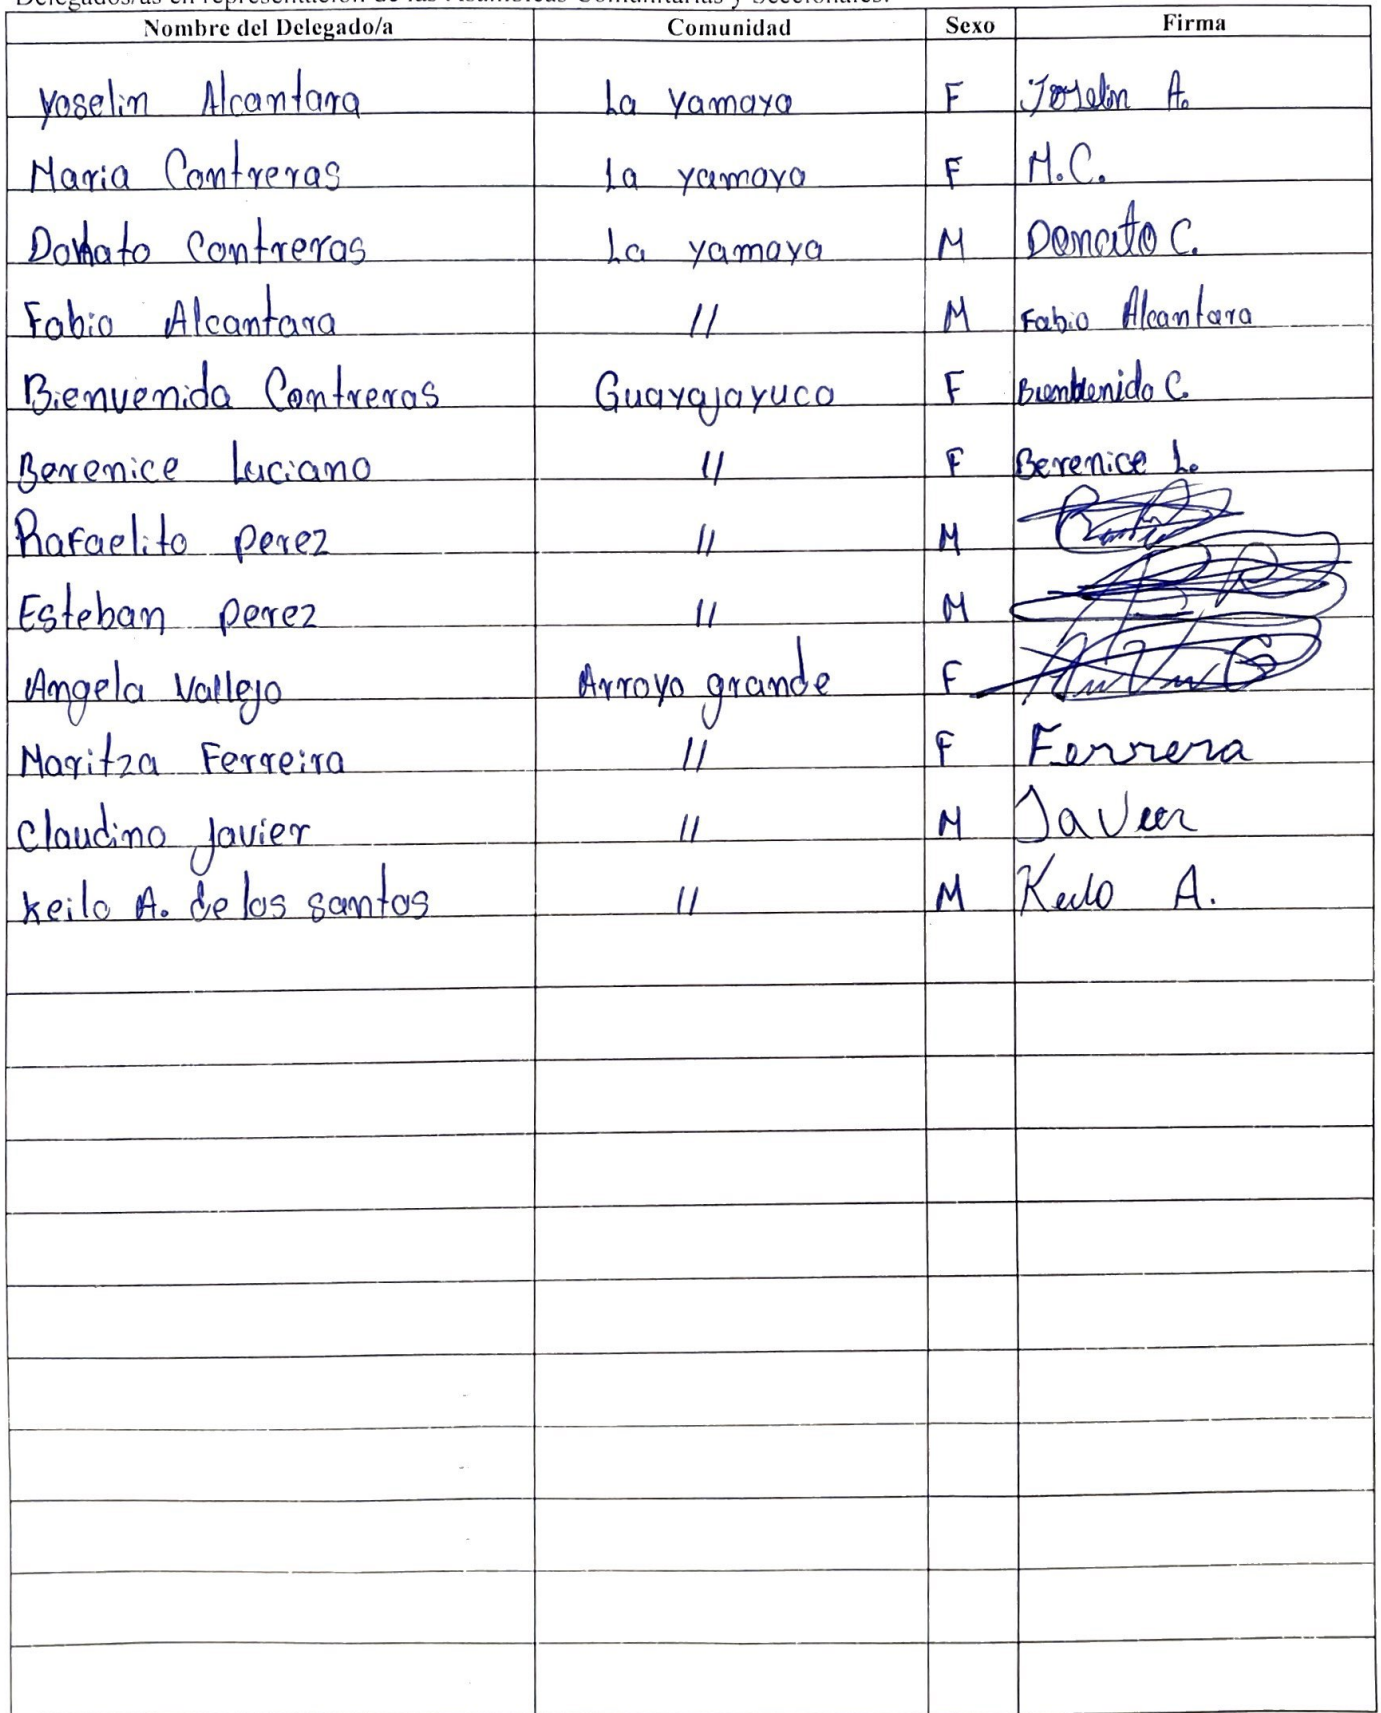 Delegados/as en representación de las Asambleas Comunitarias y Seccionales.
Nombre del Delegado/a Comunidad Sexo Firma
Yoselin Alcantara La yamaya F Joselin A.
Maria Contreras La yamaya F M.C.
Donato Contreras La yamaya M Donato C.
Fabio Alcantara // M Fabio Alcantara
Bienvenida Contreras Guayajayuco F Bienbenido C.
Berenice Luciano // F Berenice L.
Rafaelito perez // M
Esteban perez // M
Angela Vallejo Arroyo grande F
Maritza Ferreira // F Ferrera
Claudino Javier // M Javier
Keilo A. de los santos // M Keilo A.